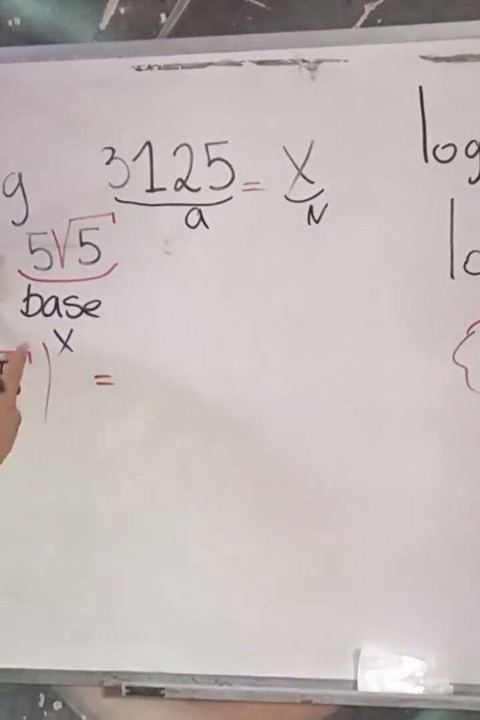 g 3125 = x log
5√5 a N
base lo
) x =